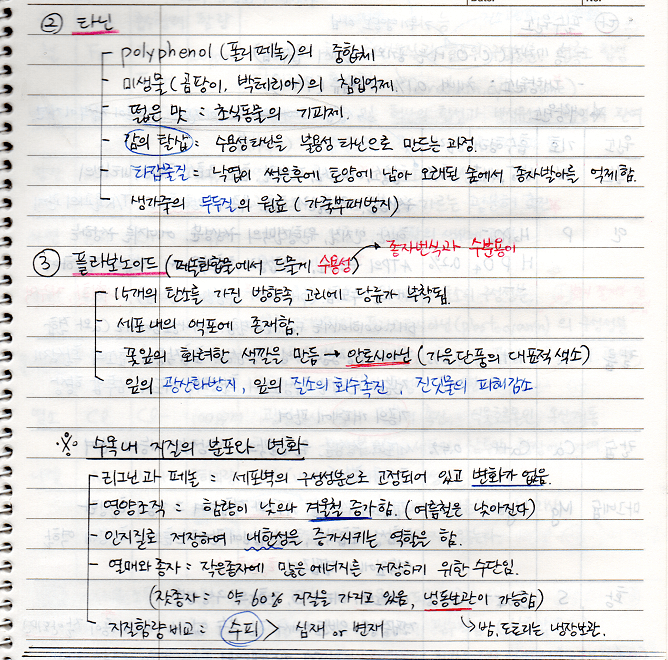 ② 타닌
- polyphenol (폴리페놀)의 중합체
- 미생물(곰팡이, 박테리아)의 침입억제
- 떫은 맛 : 초식동물의 기피제.
- 감의 탈삽 : 수용성타닌을 불용성 타닌으로 만드는 과정.
- 타감물질 : 낙엽이 썩은후에 토양에 남아 오래된 숲에서 종자발아를 억제함
- 생가죽의 무두질의 원료 (가죽부패방지)
③ 플라보노이드 (페놀화합물에서 드물게 수용성) → 종자번식과 수분용이
- 15개의 탄소를 가진 방향족 고리에 당류가 부착됨.
- 세포내의 액포에 존재함.
- 꽃잎의 화려한 색깔을 만듬 → 안토시아닌 (가을단풍의 대표적색소)
잎의 광산화방지, 잎의 질소의 회수촉진, 진딧물의 피해감소
※ 수목내 지질의 분포와 변화
- 리그닌과 페놀 : 세포벽의 구성성분으로 고정되어 있고 변화가 없음.
- 영양조직 : 함량이 낮으나 겨울철 증가함. (여름철은 낮아진다)
- 인지질로 저장하여 내한성을 증가시키는 역할을 함.
- 열매와 종자 : 작은종자에 많은 에너지를 저장하기 위한 수단임.
(잣종자 : 약 60% 지질을 가지고 있음, 냉동보관이 가능함)
- 지질함량 비교 : 수피 > 심재 or 변재 ↳ 밤, 도토리는 냉장보관.